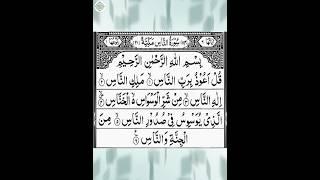 سُوْرَةُ النَّاسِ مَكِّيَّةٌ
بِسْمِ اللهِ الرَّحْمٰنِ الرَّحِيْمِ
قُلْ اَعُوْذُ بِرَبِّ النَّاسِ ۱ مَلِكِ النَّاسِ ۲
اِلٰهِ النَّاسِ ۳ مِنْ شَرِّ الْوَسْوَاسِ الْخَنَّاسِ ۴
الَّذِيْ يُوَسْوِسُ فِيْ صُدُوْرِ النَّاسِ ۵ مِنَ
الْجِنَّةِ وَالنَّاسِ ۶